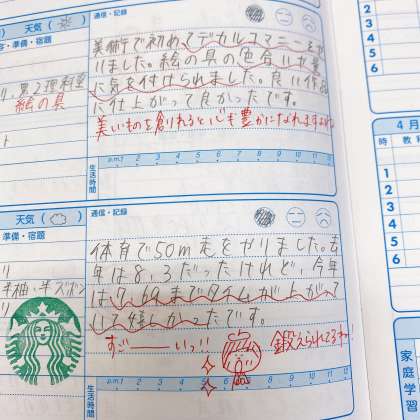 天気(
通信・記録
容・準備・宿題
美術で初めてデカルコマニーをや
りました。絵の具の色合いや量
に気を付けられました。良い作品
に仕上がって良かったです。
美しいものを創れると心も豊かになれますよね
第2理科室
絵の具
ト
生活時間
p.m.1 2 3 4 5 6 7 8 9 10 11 12
天気(
通信・記録
準備・宿題
体育で50m走をやりました。去
年は8,3だったけれど、今年
は7,69までタイムが上がって
いて嬉しかったです。
すご――いっ!!
鍛えられてるね!
り
半袖、半ズボン
生活時間
p.m.1 2 3 4 5 6 7 8 9 10 11 12
2
3
4
5
6
4月
時
教科
1
2
3
4
5
6
家庭学習